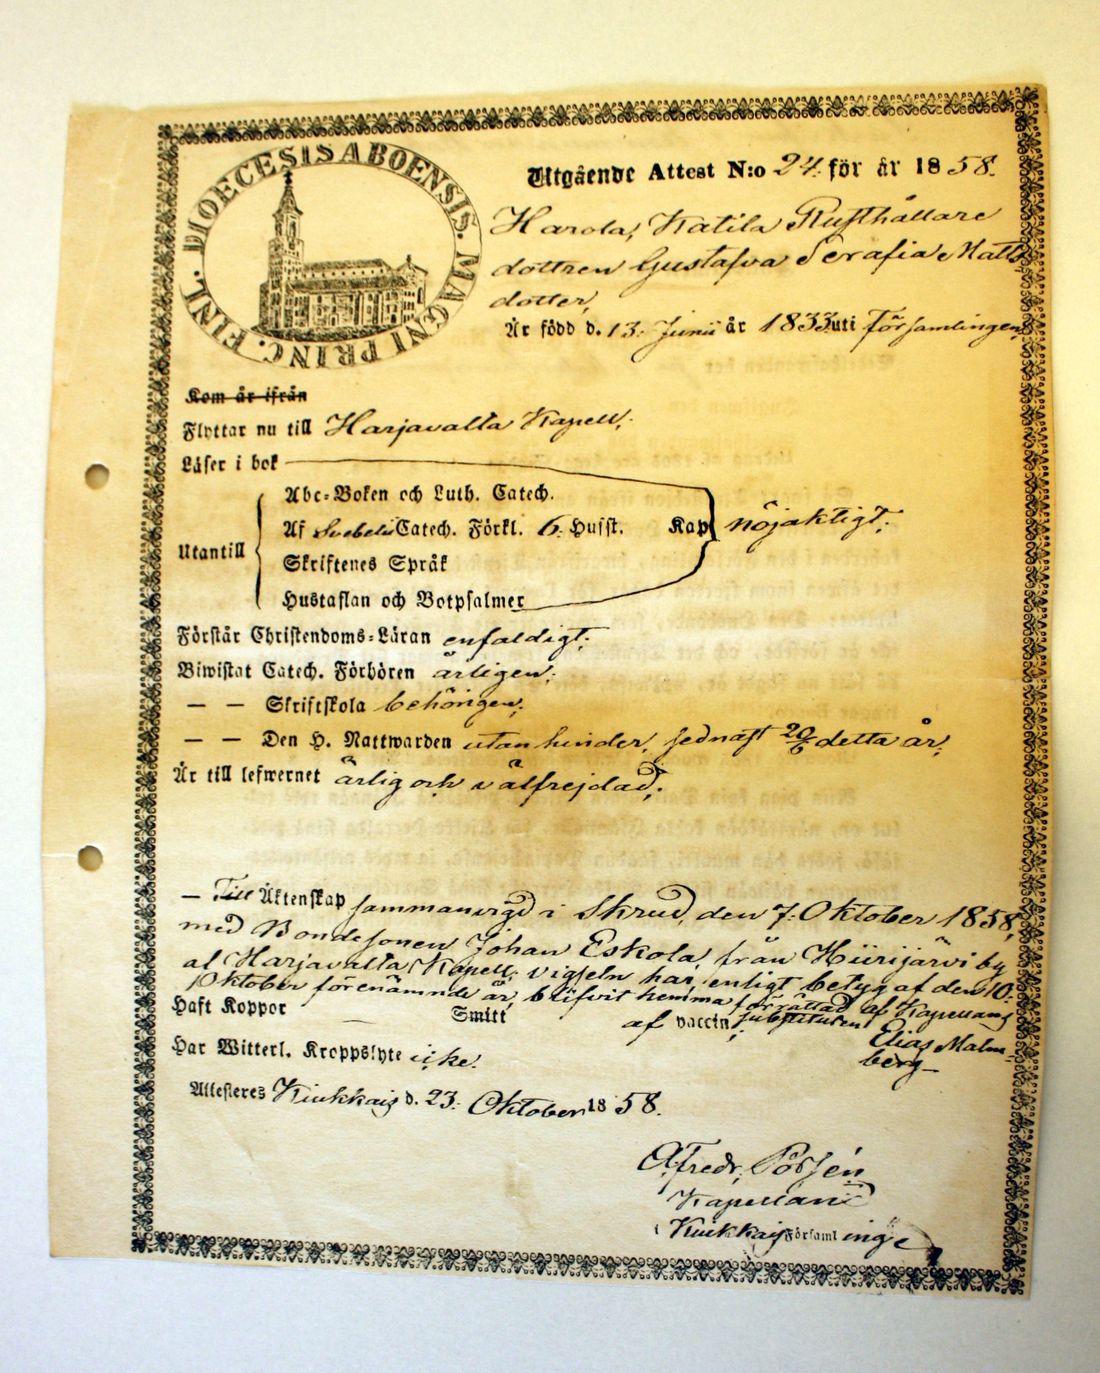 DIOECESIS ABOENSIS. MAGNI PRINC. FINL.
Utgående Attest N:o 24. för år 1858.
Harola, Katila Rusthållare
dottren Gustafva Serafia Matts
dotter,
Är född d. 13. Junii år 1833 uti Församlingen,
Kom år ifrån
Flyttar nu till Harjavalta Kapell;
Läser i bok
Abc-Boken och Luth. Catech.
Af Svebelii Catech. Förkl. 6. Husst. Kap nöjaktigt;
Utantill
Skriftenes Språk
Hustaflan och Botpsalmer
Förstår Christendoms-Läran enfaldigt;
Biwistat Catech. Förhören årligen;
— — Skriftskola behörigen;
— — Den H. Nattwarden utan hinder, sednast 20/6 detta år;
Är till lefwernet ärlig och välfrejdad;
— Till Äktenskap sammanvigd i Skrud, den 7. Oktober 1858,
med Bondesonen Johan Eskola, från Hiirijärvi by
af Harjavalta Kapell; vigseln har, enligt betyg af den 10.
Oktober förenämnde år, blifvit hemma förrättad af Kapellans
substituten Elias Malm-
berg—
Haft Koppor — Smitt af vaccin;
Har Witterl. Kroppslyte icke.
Attesteres Kiukkais d. 23. Oktober 1858.
Alfredr. Polsén
Kapellan
i Kiukkais Församlinge